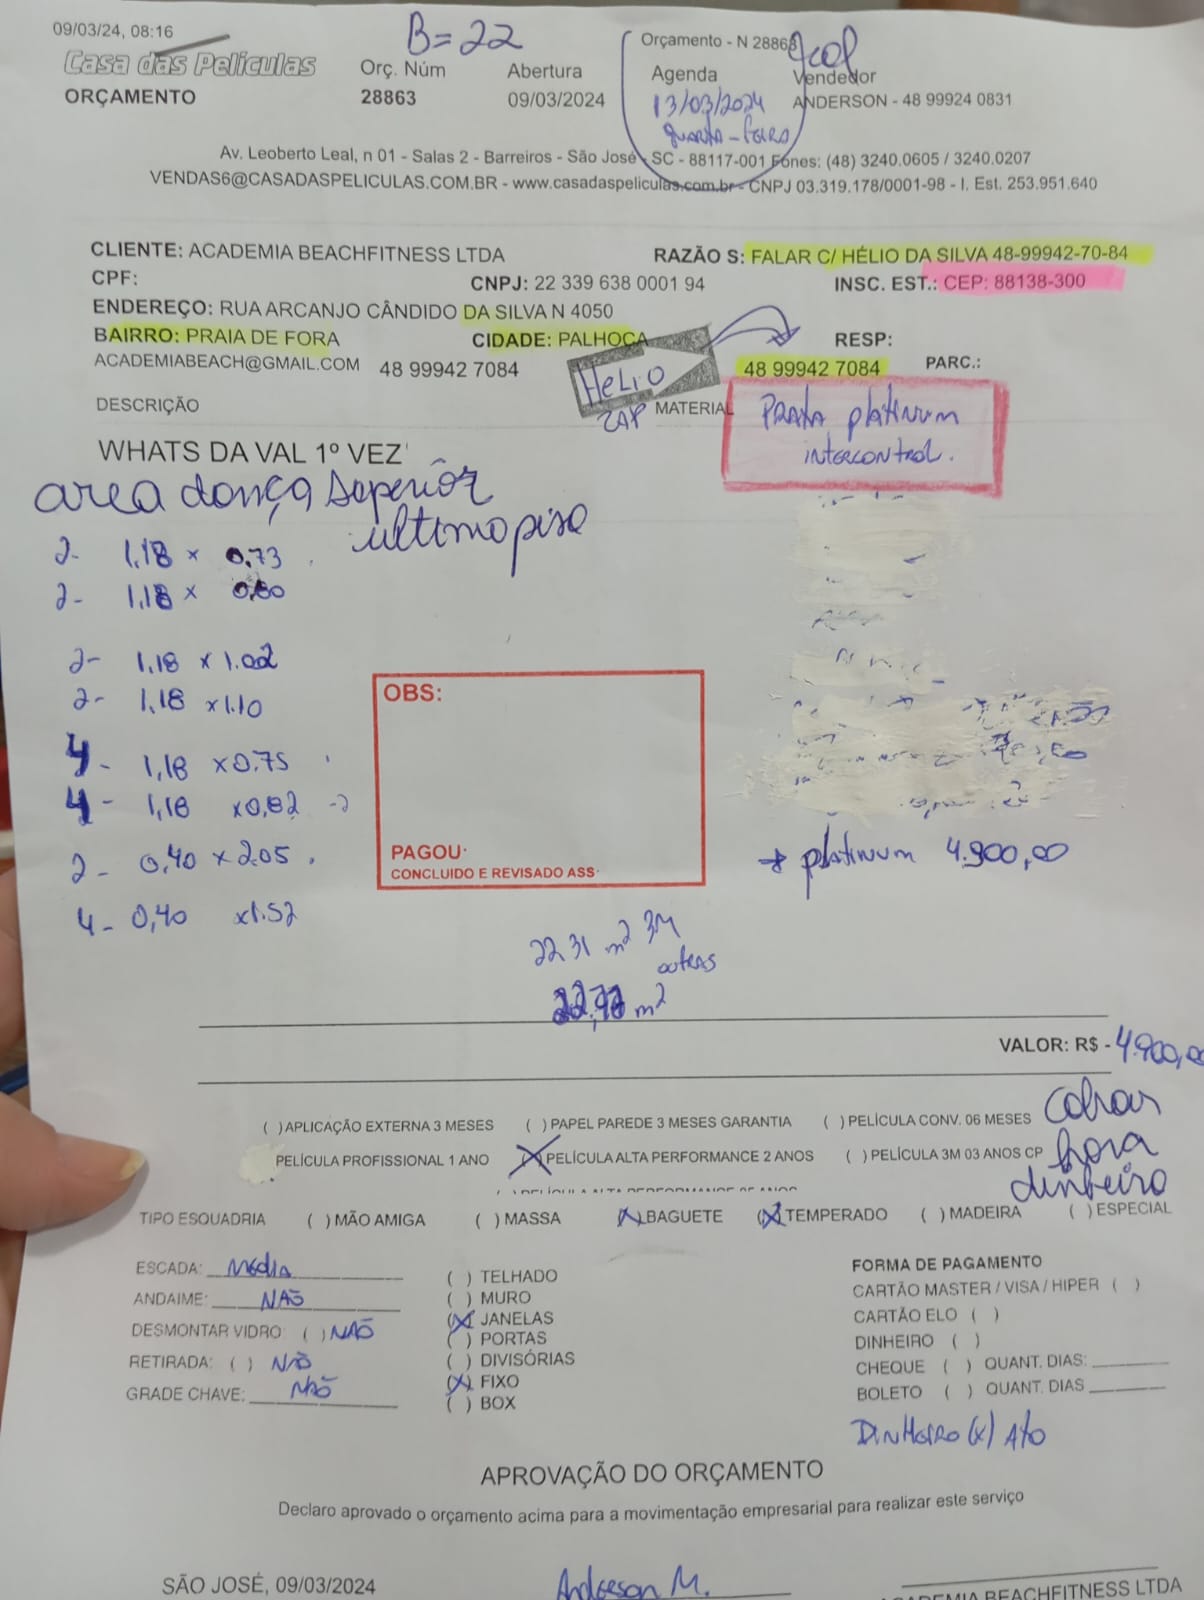 09/03/24, 08:16
B=22
Orçamento - N 28863
Casa das Películas
Orç. Núm
Abertura
Agenda
Vendedor
ORÇAMENTO
28863
09/03/2024
13/03/2024
ANDERSON - 48 99924 0831
quarta-feira
Av. Leoberto Leal, n 01 - Salas 2 - Barreiros - São José - SC - 88117-001 Fones: (48) 3240.0605 / 3240.0207
VENDAS6@CASADASPELICULAS.COM.BR - www.casadaspeliculas.com.br - CNPJ 03.319.178/0001-98 - I. Est. 253.951.640
CLIENTE: ACADEMIA BEACHFITNESS LTDA
RAZÃO S: FALAR C/ HÉLIO DA SILVA 48-99942-70-84
CPF:
CNPJ: 22 339 638 0001 94
INSC. EST.: CEP: 88138-300
ENDEREÇO: RUA ARCANJO CÂNDIDO DA SILVA N 4050
BAIRRO: PRAIA DE FORA
CIDADE: PALHOÇA
RESP:
ACADEMIABEACH@GMAIL.COM
48 99942 7084
HELIO
48 99942 7084
PARC.:
DESCRIÇÃO
ZAP
MATERIAL
PRATA platinum
intercontrol.
WHATS DA VAL 1º VEZ
area dança superior
ultimo piso
2- 1,18 x 0,73
2- 1,18 x 0,80
2- 1,18 x 1.02
2- 1,18 x 1.10
4- 1,18 x 0.75
4- 1,18 x 0,82
2- 0,40 x 2.05
4- 0,40 x 1.52
OBS:
PAGOU:
CONCLUIDO E REVISADO ASS:
platinum 4.900,00
22 31 m² 3M
outras
m²
VALOR: R$ - 4.900,00
Cobrar
hora
dinheiro
( ) APLICAÇÃO EXTERNA 3 MESES ( ) PAPEL PAREDE 3 MESES GARANTIA ( ) PELÍCULA CONV. 06 MESES
PELÍCULA PROFISSIONAL 1 ANO (X) PELÍCULA ALTA PERFORMANCE 2 ANOS ( ) PELÍCULA 3M 03 ANOS CP
TIPO ESQUADRIA ( ) MÃO AMIGA ( ) MASSA (X) BAGUETE (X) TEMPERADO ( ) MADEIRA ( ) ESPECIAL
ESCADA: Média
ANDAIME: NÃO
DESMONTAR VIDRO: ( ) NÃO
RETIRADA: ( ) NÃO
GRADE CHAVE: NÃO
( ) TELHADO
( ) MURO
(X) JANELAS
( ) PORTAS
( ) DIVISÓRIAS
(X) FIXO
( ) BOX
FORMA DE PAGAMENTO
CARTÃO MASTER / VISA / HIPER ( )
CARTÃO ELO ( )
DINHEIRO ( )
CHEQUE ( ) QUANT. DIAS:
BOLETO ( ) QUANT. DIAS
DINHEIRO (X) ATO
APROVAÇÃO DO ORÇAMENTO
Declaro aprovado o orçamento acima para a movimentação empresarial para realizar este serviço
SÃO JOSÉ, 09/03/2024
Anderson M.
BEACHFITNESS LTDA